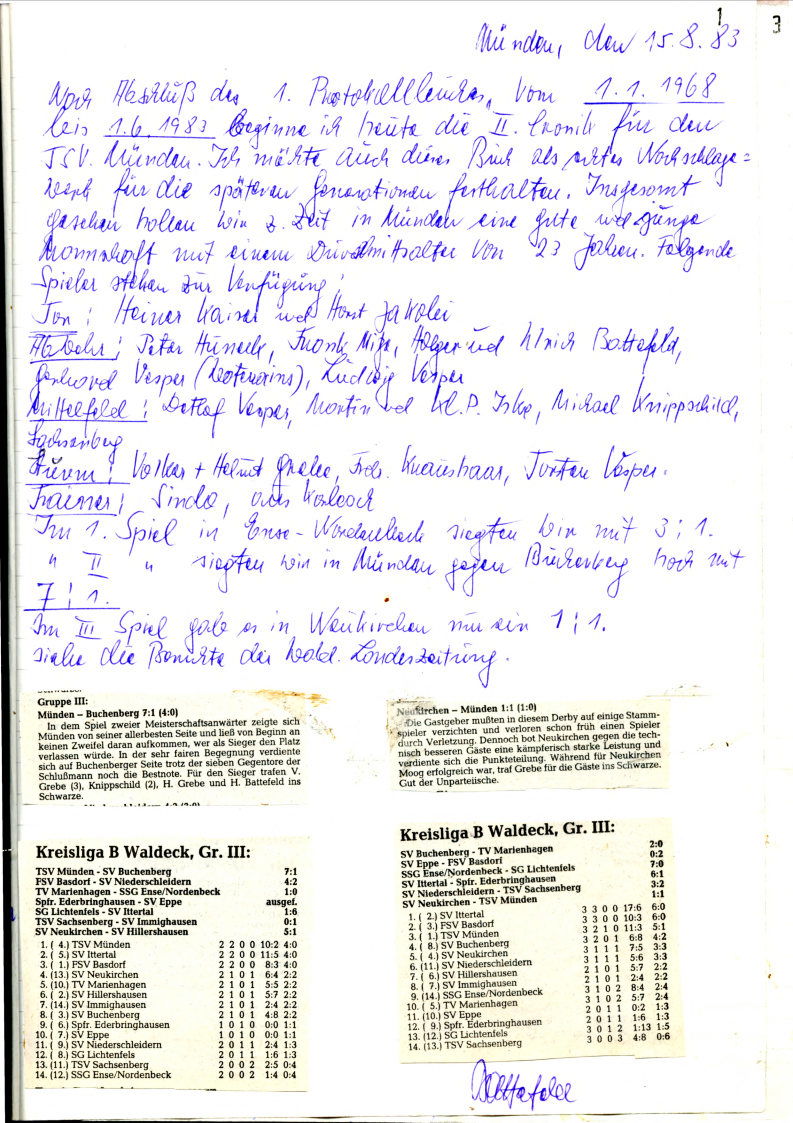 1
3
Münden, den 15.8.83
Nach Abschluß des 1. Protokollbuches, vom 1.1.1968
bis 1.6.1983 beginne ich heute die II. Cronik für den
TSV. Münden. Ich möchte auch dieses Buch als echtes Nachschlage=
werk für die späteren Generationen festhalten. Insgesamt
gesehen haben wir z. Zeit in Münden eine gute und junge
Mannschaft mit einem Durchnittsalter von 23 Jahren. Folgende
Spieler stehen zur Verfügung:
Tor: Heiner Kaiser und Horst Jakobi
Abwehr: Peter Huneck, Frank , Holger und Ulrich Battefeld,
Gerhard Vesper (), Ludwig Vesper
Mittelfeld: Detlef Vesper, Martin und Kl. P. Iske, Michael Knippschild,
Sachsenberg
Sturm: Volker + Helmut Grebe, Frdr. Knaushaar, Torsten Vesper.
Trainer: Sinda, aus Korbach
Im 1. Spiel in Ense-Nordenbeck siegten wir mit 3:1.
" II " siegten wir in Münden gegen Buchenberg hoch mit
7:1.
Im III Spiel gab es in Neukirchen nur ein 1:1.
siehe die Berichte der Wald. Landeszeitung.
Gruppe III:
Münden – Buchenberg 7:1 (4:0)
In dem Spiel zweier Meisterschaftsanwärter zeigte sich
Münden von seiner allerbesten Seite und ließ von Beginn an
keinen Zweifel daran aufkommen, wer als Sieger den Platz
verlassen würde. In der sehr fairen Begegnung verdiente
sich auf Buchenberger Seite trotz der sieben Gegentore der
Schlußmann noch die Bestnote. Für den Sieger trafen V.
Grebe (3), Knippschild (2), H. Grebe und H. Battefeld ins
Schwarze.
Neukirchen – Münden 1:1 (1:0)
Die Gastgeber mußten in diesem Derby auf einige Stamm-
spieler verzichten und verloren schon früh einen Spieler
durch Verletzung. Dennoch bot Neukirchen gegen die tech-
nisch besseren Gäste eine kämpferisch starke Leistung und
verdiente sich die Punkteteilung. Während für Neukirchen
Moog erfolgreich war, traf Grebe für die Gäste ins Schwarze.
Gut der Unparteiische.
Kreisliga B Waldeck, Gr. III:
TSV Münden - SV Buchenberg 7:1
FSV Basdorf - SV Niederschleidern 4:2
TV Marienhagen - SSG Ense/Nordenbeck 1:0
Spfr. Ederbringhausen - SV Eppe ausgef.
SG Lichtenfels - SV Ittertal 1:6
TSV Sachsenberg - SV Immighausen 0:1
SV Neukirchen - SV Hillershausen 5:1
1. ( 4.) TSV Münden 2 2 0 0 10:2 4:0
2. ( 5.) SV Ittertal 2 2 0 0 11:5 4:0
3. ( 1.) FSV Basdorf 2 2 0 0 8:3 4:0
4. (13.) SV Neukirchen 2 1 0 1 6:4 2:2
5. (10.) TV Marienhagen 2 1 0 1 5:5 2:2
6. ( 2.) SV Hillershausen 2 1 0 1 5:7 2:2
7. (14.) SV Immighausen 2 1 0 1 2:4 2:2
8. ( 3.) SV Buchenberg 2 1 0 1 4:8 2:2
9. ( 6.) Spfr. Ederbringhausen 1 0 1 0 0:0 1:1
10. ( 7.) SV Eppe 1 0 1 0 0:0 1:1
11. ( 9.) SV Niederschleidern 2 0 1 1 2:4 1:3
12. ( 8.) SG Lichtenfels 2 0 1 1 1:6 1:3
13. (11.) TSV Sachsenberg 2 0 0 2 2:5 0:4
14. (12.) SSG Ense/Nordenbeck 2 0 0 2 1:4 0:4
Kreisliga B Waldeck, Gr. III:
SV Buchenberg - TV Marienhagen 2:0
SV Eppe - FSV Basdorf 0:2
SSG Ense/Nordenbeck - SG Lichtenfels 7:0
SV Ittertal - Spfr. Ederbringhausen 6:1
SV Niederschleidern - TSV Sachsenberg 3:2
SV Neukirchen - TSV Münden 1:1
1. ( 2.) SV Ittertal 3 3 0 0 17:6 6:0
2. ( 3.) FSV Basdorf 3 3 0 0 10:3 6:0
3. ( 1.) TSV Münden 3 2 1 0 11:3 5:1
4. ( 8.) SV Buchenberg 3 2 0 1 6:8 4:2
5. ( 4.) SV Neukirchen 3 1 1 1 7:5 3:3
6. (11.) SV Niederschleidern 3 1 1 1 5:6 3:3
7. ( 6.) SV Hillershausen 2 1 0 1 5:7 2:2
8. ( 7.) SV Immighausen 2 1 0 1 2:4 2:2
9. (14.) SSG Ense/Nordenbeck 3 1 0 2 8:4 2:4
10. ( 5.) TV Marienhagen 3 1 0 2 5:7 2:4
11. (10.) SV Eppe 2 0 1 1 0:2 1:3
12. ( 9.) Spfr. Ederbringhausen 2 0 1 1 1:6 1:3
13. (12.) SG Lichtenfels 3 0 1 2 1:13 1:5
14. (13.) TSV Sachsenberg 3 0 0 3 4:8 0:6
Battefeld